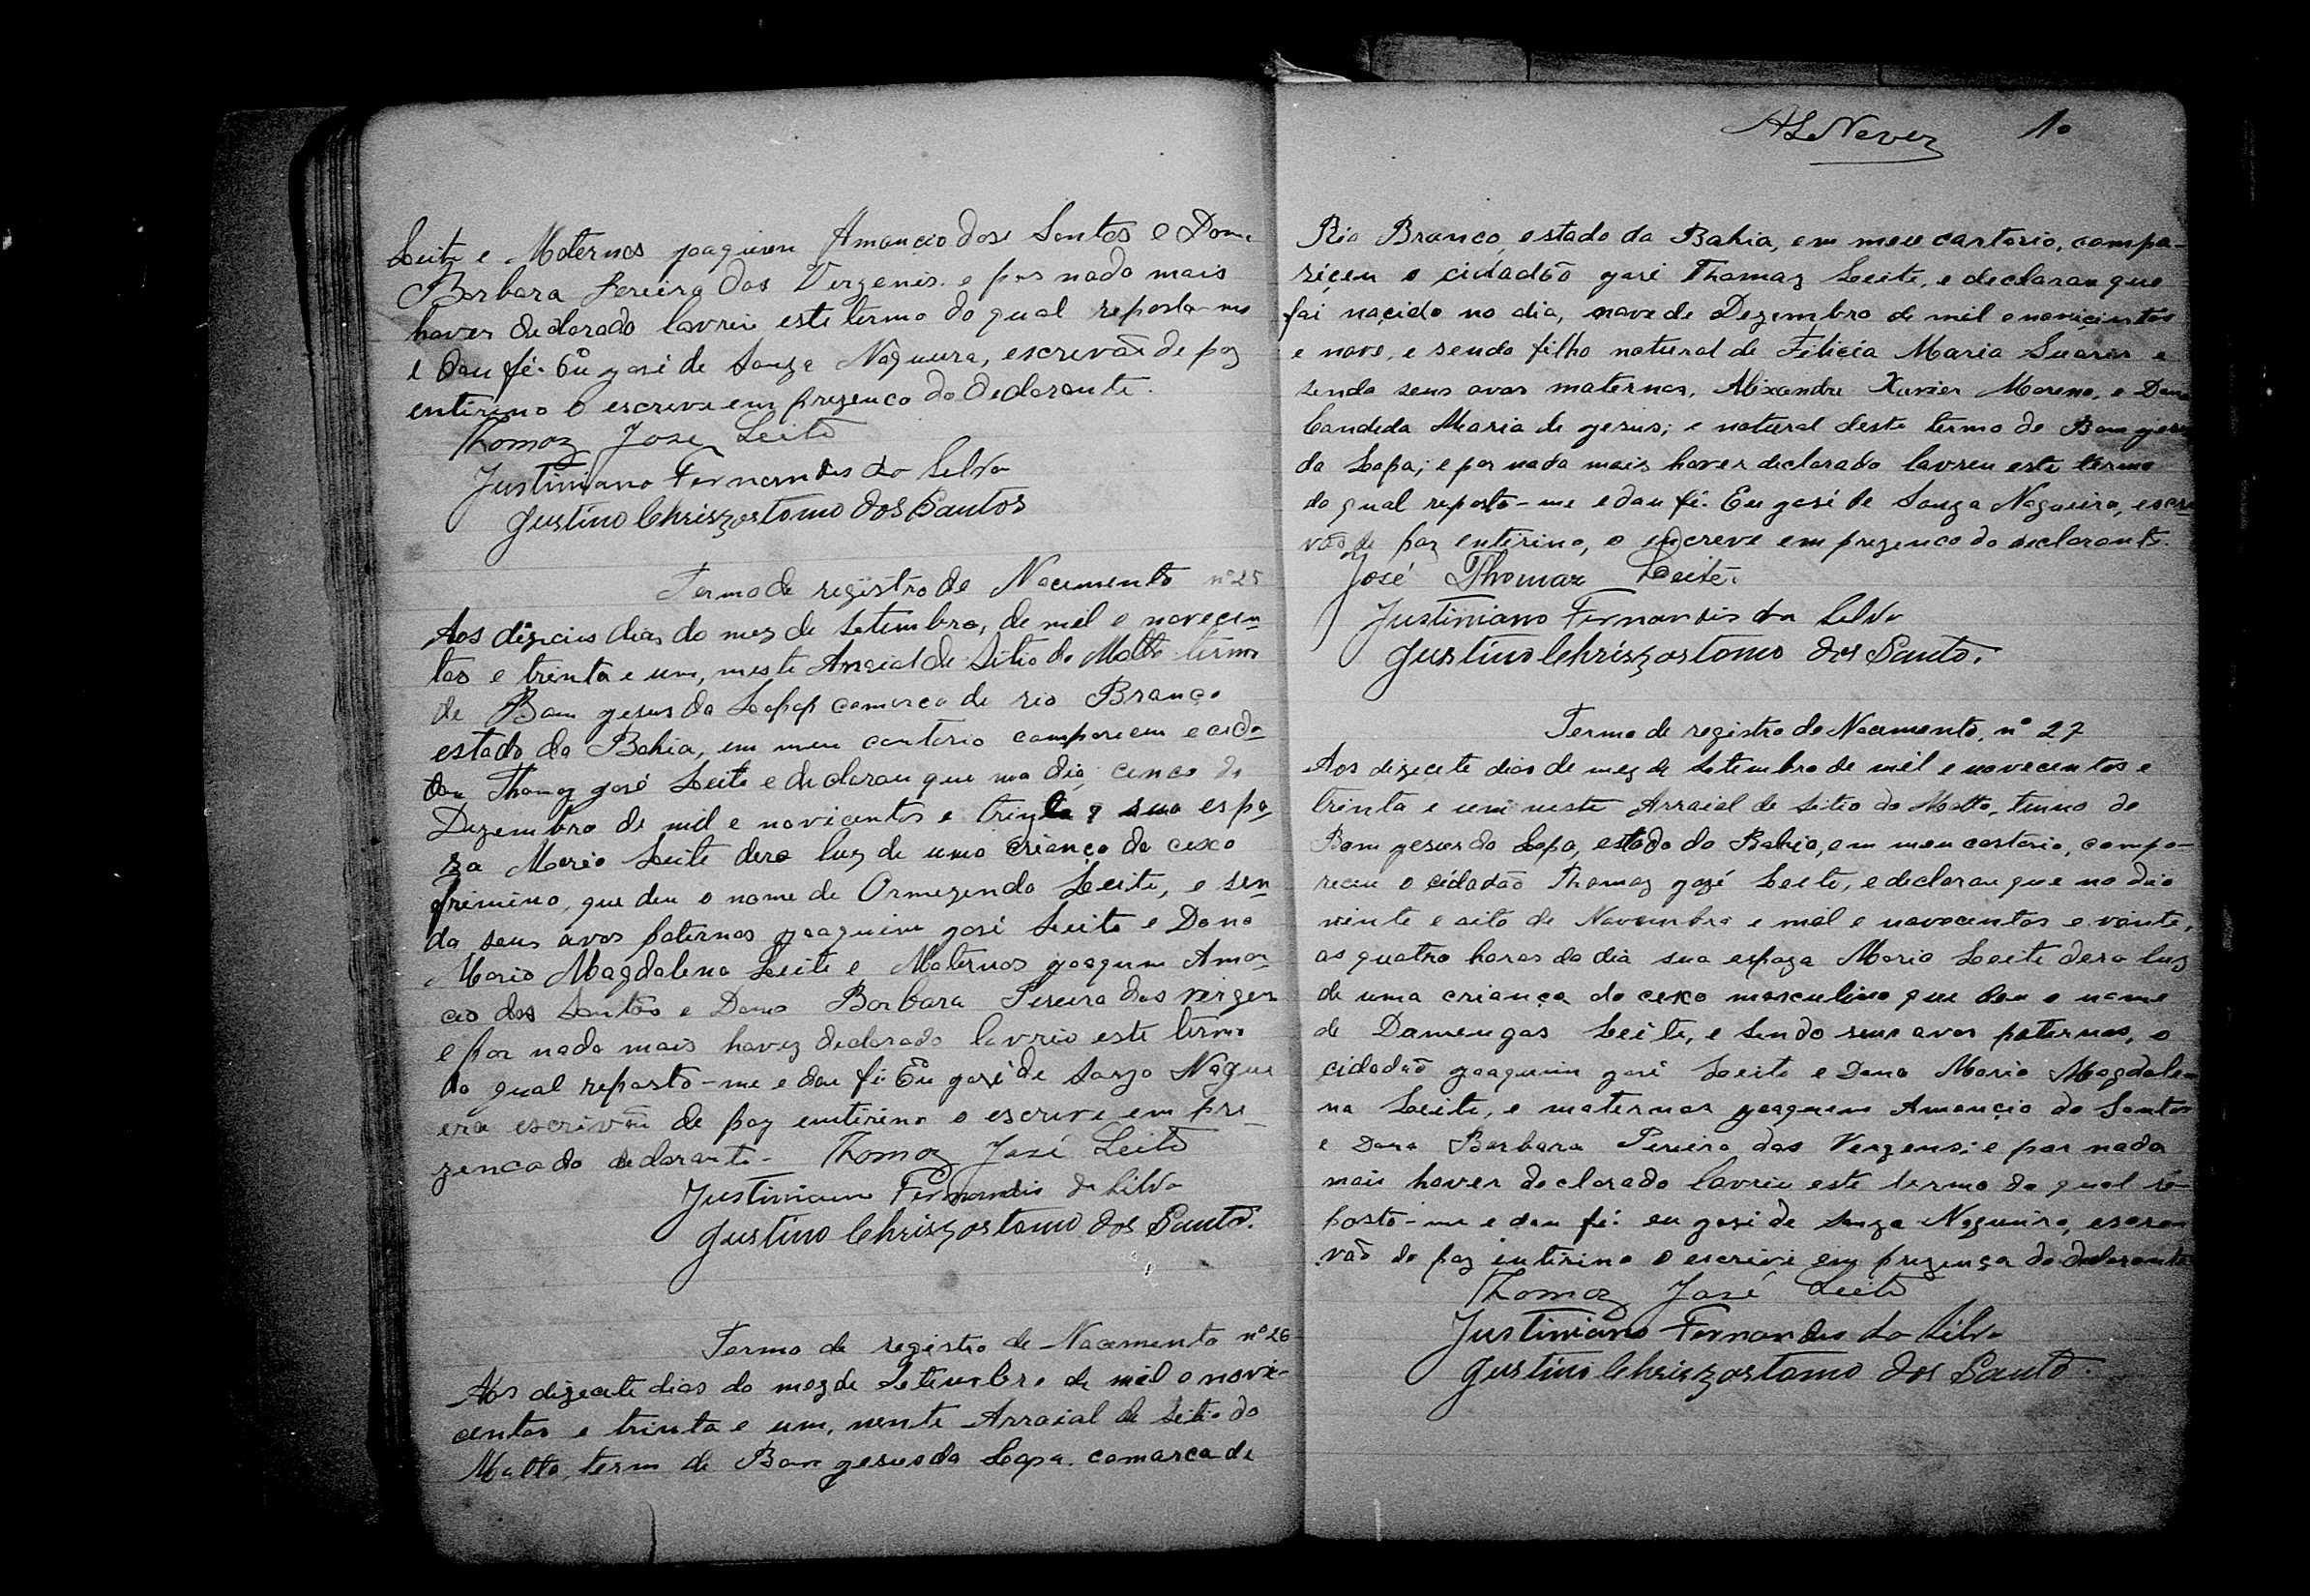 Leite e Maternos joaquim Amancio dos Santos e Dona
Barbara Pereira das Virgenis. e por nada mais
haver declarado lavrei este termo do qual reposta-me
e dou fé. Eu josé de Souza Nogueira, escrevão de paz
entirino o escreve em prezenca do declarante.
Thomaz José Leite
Justiniano Fernandes da Silva
Justino Chriszostomo dos Santos
Termo de registro de Nacimento nº 25
Aos dizacies dias do mez de Setembro, de mil e novecen-
tos e trinta e um, neste Arraial de Sitio do Matto termo
de Bom jesus da Lapa comarca de rio Branco
estado da Bahia, em meu cartorio compareceu o cida-
dão Thomaz josé Leite e declarou que no dia, cinco de
Dezembro de mil e novicentos e trinta, sua espo-
za Maria Leite dera luz de uma criança do cexo
friminino, que deu o nome de Ormezenda Leite, e sen-
do seus avos paternos joaquim josé Leite e Dona
Maria Magdalena Leite e Maternos joaquim Aman-
cio dos Santos e Dona Barbara Pereira das Virgen
e por nada mais haver declarado lavrio este termo
do qual reposto-me e dou fé. Eu josé de Souza Nogue
era escrivão de paz emtirino o escrive em pre-
zenca do declarante. Thomaz José Leite
Justiniano Fernandis da Silva
Justino Chriszostomo dos Santo.
Termo de registro de Nacemento nº 26
Aos dizacete dias do mez de Setembro de mil e novi-
centos e trinta e um, neste Arraial de Sitio do
Matto, term de Bom jesus da Lapa. comarca de
ALNeves 10
Rio Branco, estado da Bahia, em meu cartorio, compa-
riceu o cidadão josé Thomaz Leite, e declarou que
fai nacido no dia, nove de Dezembro de mil e noviçintos
e nove, e sendo filho natural de Filicia Maria Suares e
sendo seus avos maternos, Alixandre Xavier Moreno, e Dona
Candida Maria de jesus; e natural deste termo de Bom jesus
da Lapa; e por nada mais haver declarado lavreu este termo
do qual reposto-me e dou fé. Eu josé de Souza Nogueira, escre
vão de paz entirino, o encreve em prezenca do declarante.
José Thomaz Leite.
Justiniano Fernandis da Silva
Justino Chriszostomo dos Santo.
Termo de registro de Nacimento, nº 27
Aos dizecete dias de mez de Setembro de mil e novecentos e
trinta e um neste Arraial de Sitio do Matto, termo de
Bom jesus da Lapa, estado da Bahia, em meu cartorio, compa-
receu o cidadão Thomaz josé Leite, e declarou que no dia
vinte e aito de Novembro e mil e novecentos e vinte,
as quatro horas do dia sua espoza Maria Leite dera luz
de uma criança do cexo masculino que deu o nome
de Damengos Leite, e sendo seus avos paternos, o
cidadão joaquim josé Leite e Dona Maria Magdale-
na Leite, e maternos joaquim Amancio do Santos
e Dona Barbara Pereira das Vergens; e por nada
mais haver declarado lavriu este termo do qual re-
posto-me e dou fé. eu josé de Souza Nogueira, escre
vão de paz entirino o escrivi em prezença do declarante
Thomaz José Leite
Justiniano Fernandes da Silva
Justino Chriszostomo dos Santo.